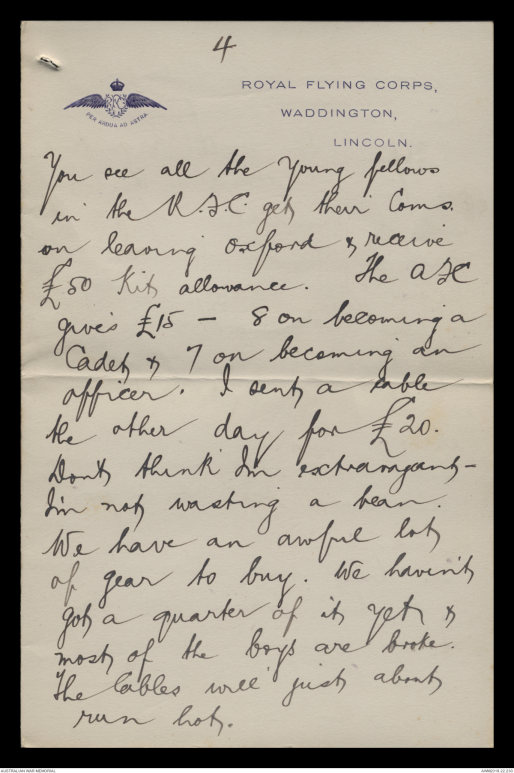 4
ROYAL FLYING CORPS,
WADDINGTON,
LINCOLN.
RFC
PER ARDUA AD ASTRA
You see all the young fellows
in the R.F.C. get their Coms.
on leaving Oxford & receive
£50 Kit allowance. The AFC
gives £15 - 8 on becoming a
Cadet & 7 on becoming an
officer. I sent a cable
the other day for £20.
Don't think I'm extravagant -
I'm not wasting a bean.
We have an awful lot
of gear to buy. We haven't
got a quarter of it yet &
most of the boys are broke.
The Cables will just about
run hot.
AUSTRALIAN WAR MEMORIAL